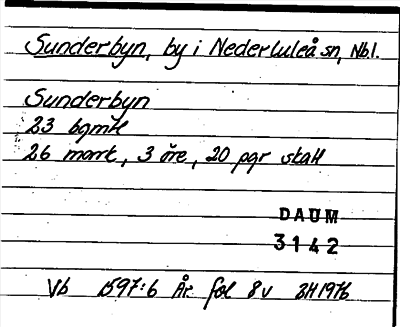 Sunderbyn, by i Nederluleå sn, Nbl.
Sunderbyn
23 bgmtl
26 mark, 3 öre, 20 pgr skatt
DAUM
3142
Vb 1597:6 År fol 8v BH1976